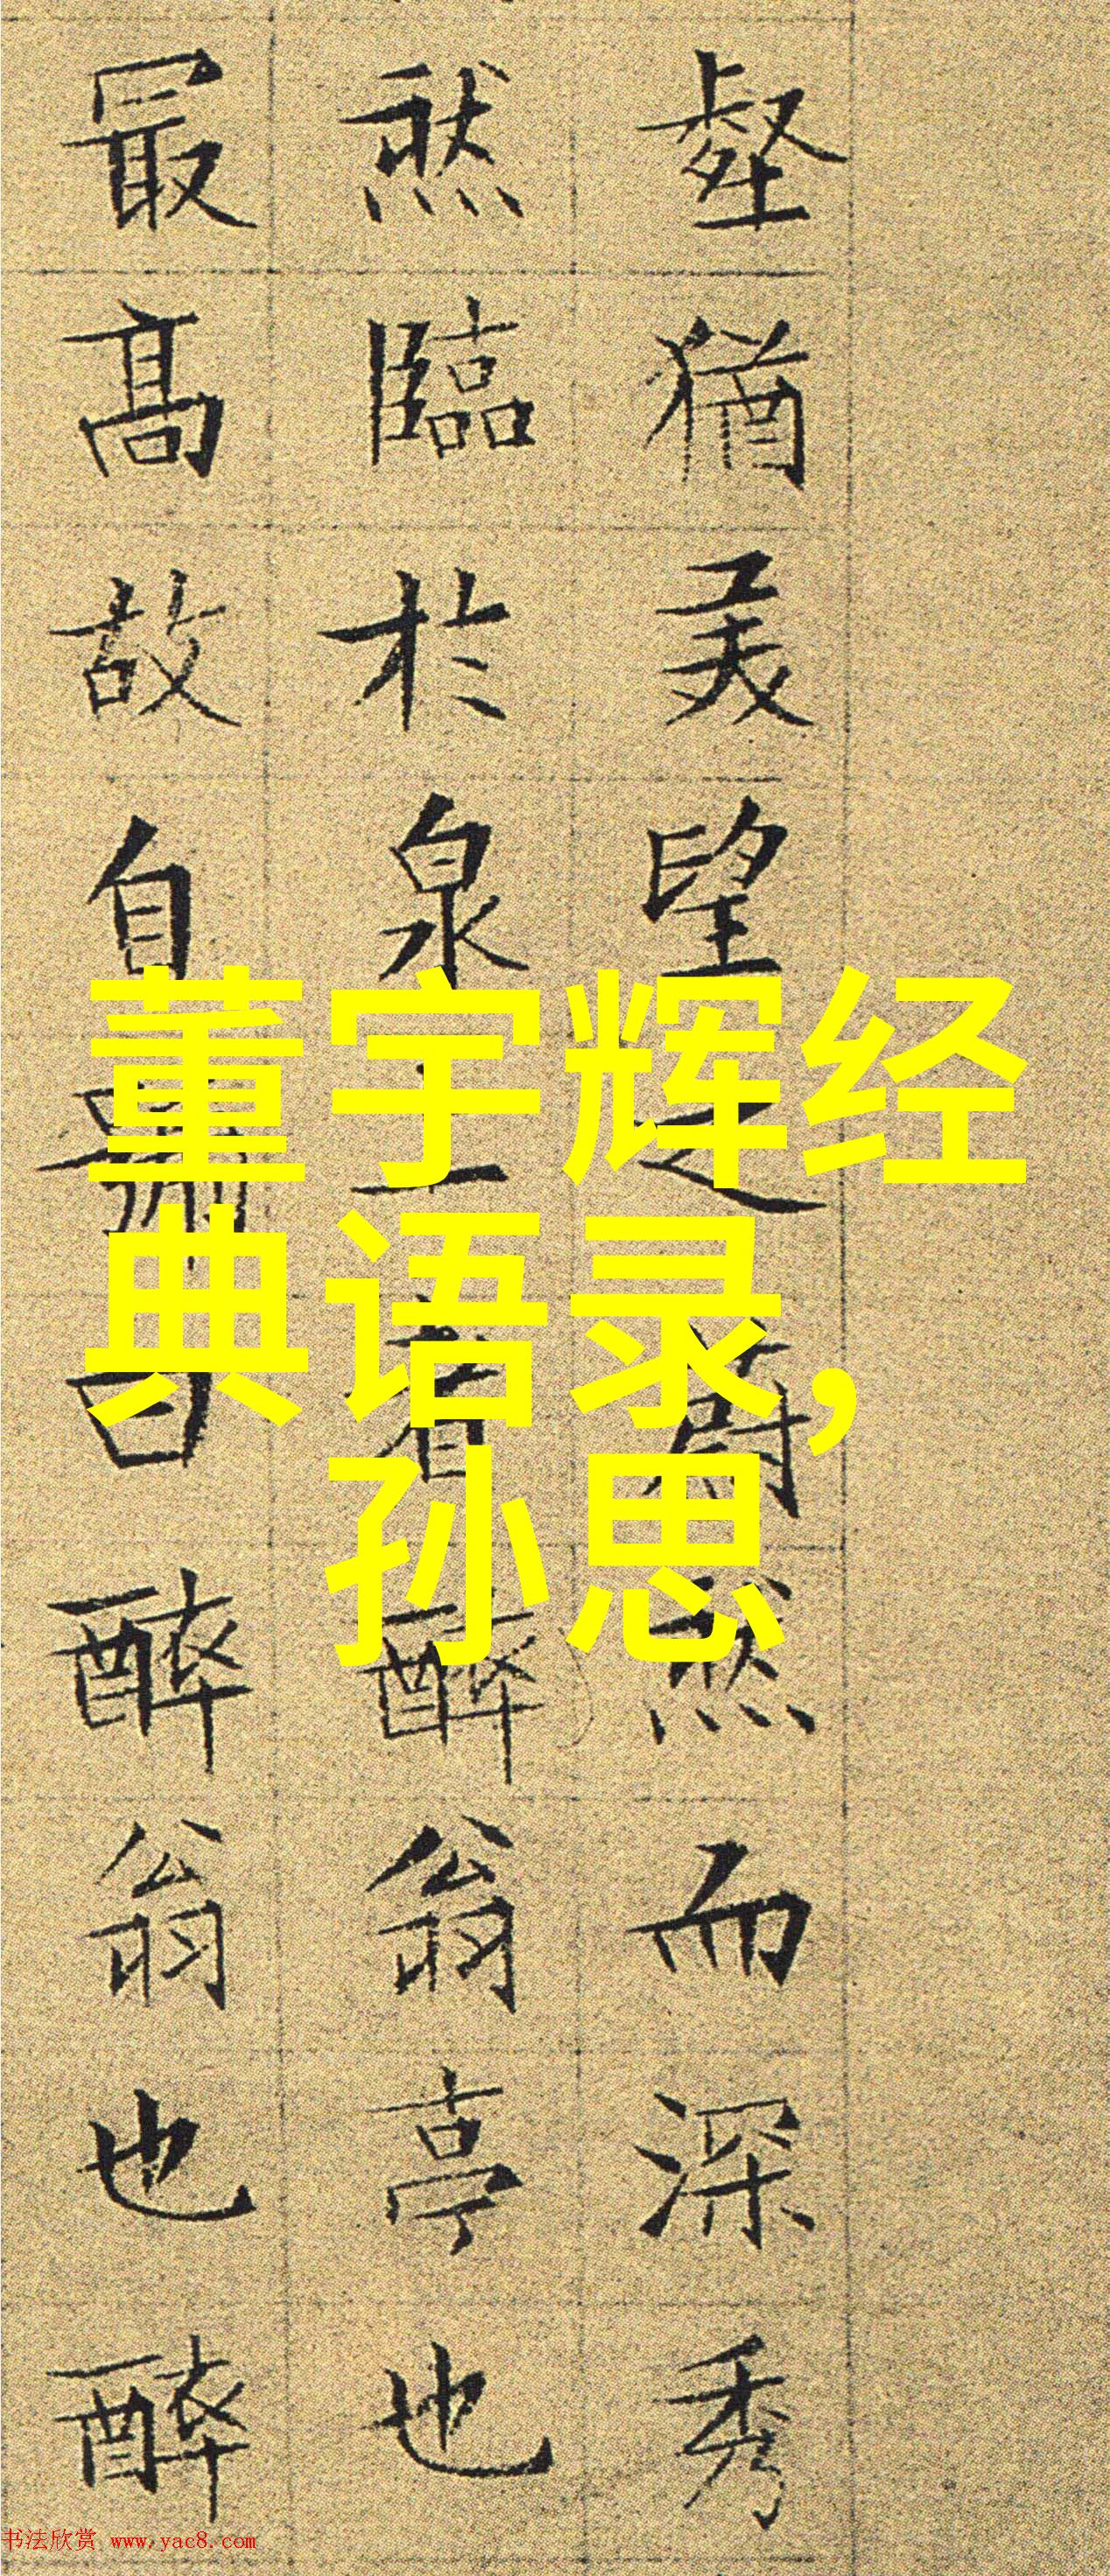 壑猶美望之蔚然而深秀
然臨於泉上者醉翁亭也
最高故自號曰醉翁也醉
董宇辉经
典语录，
孙思
书法欣赏 www.yac8.com